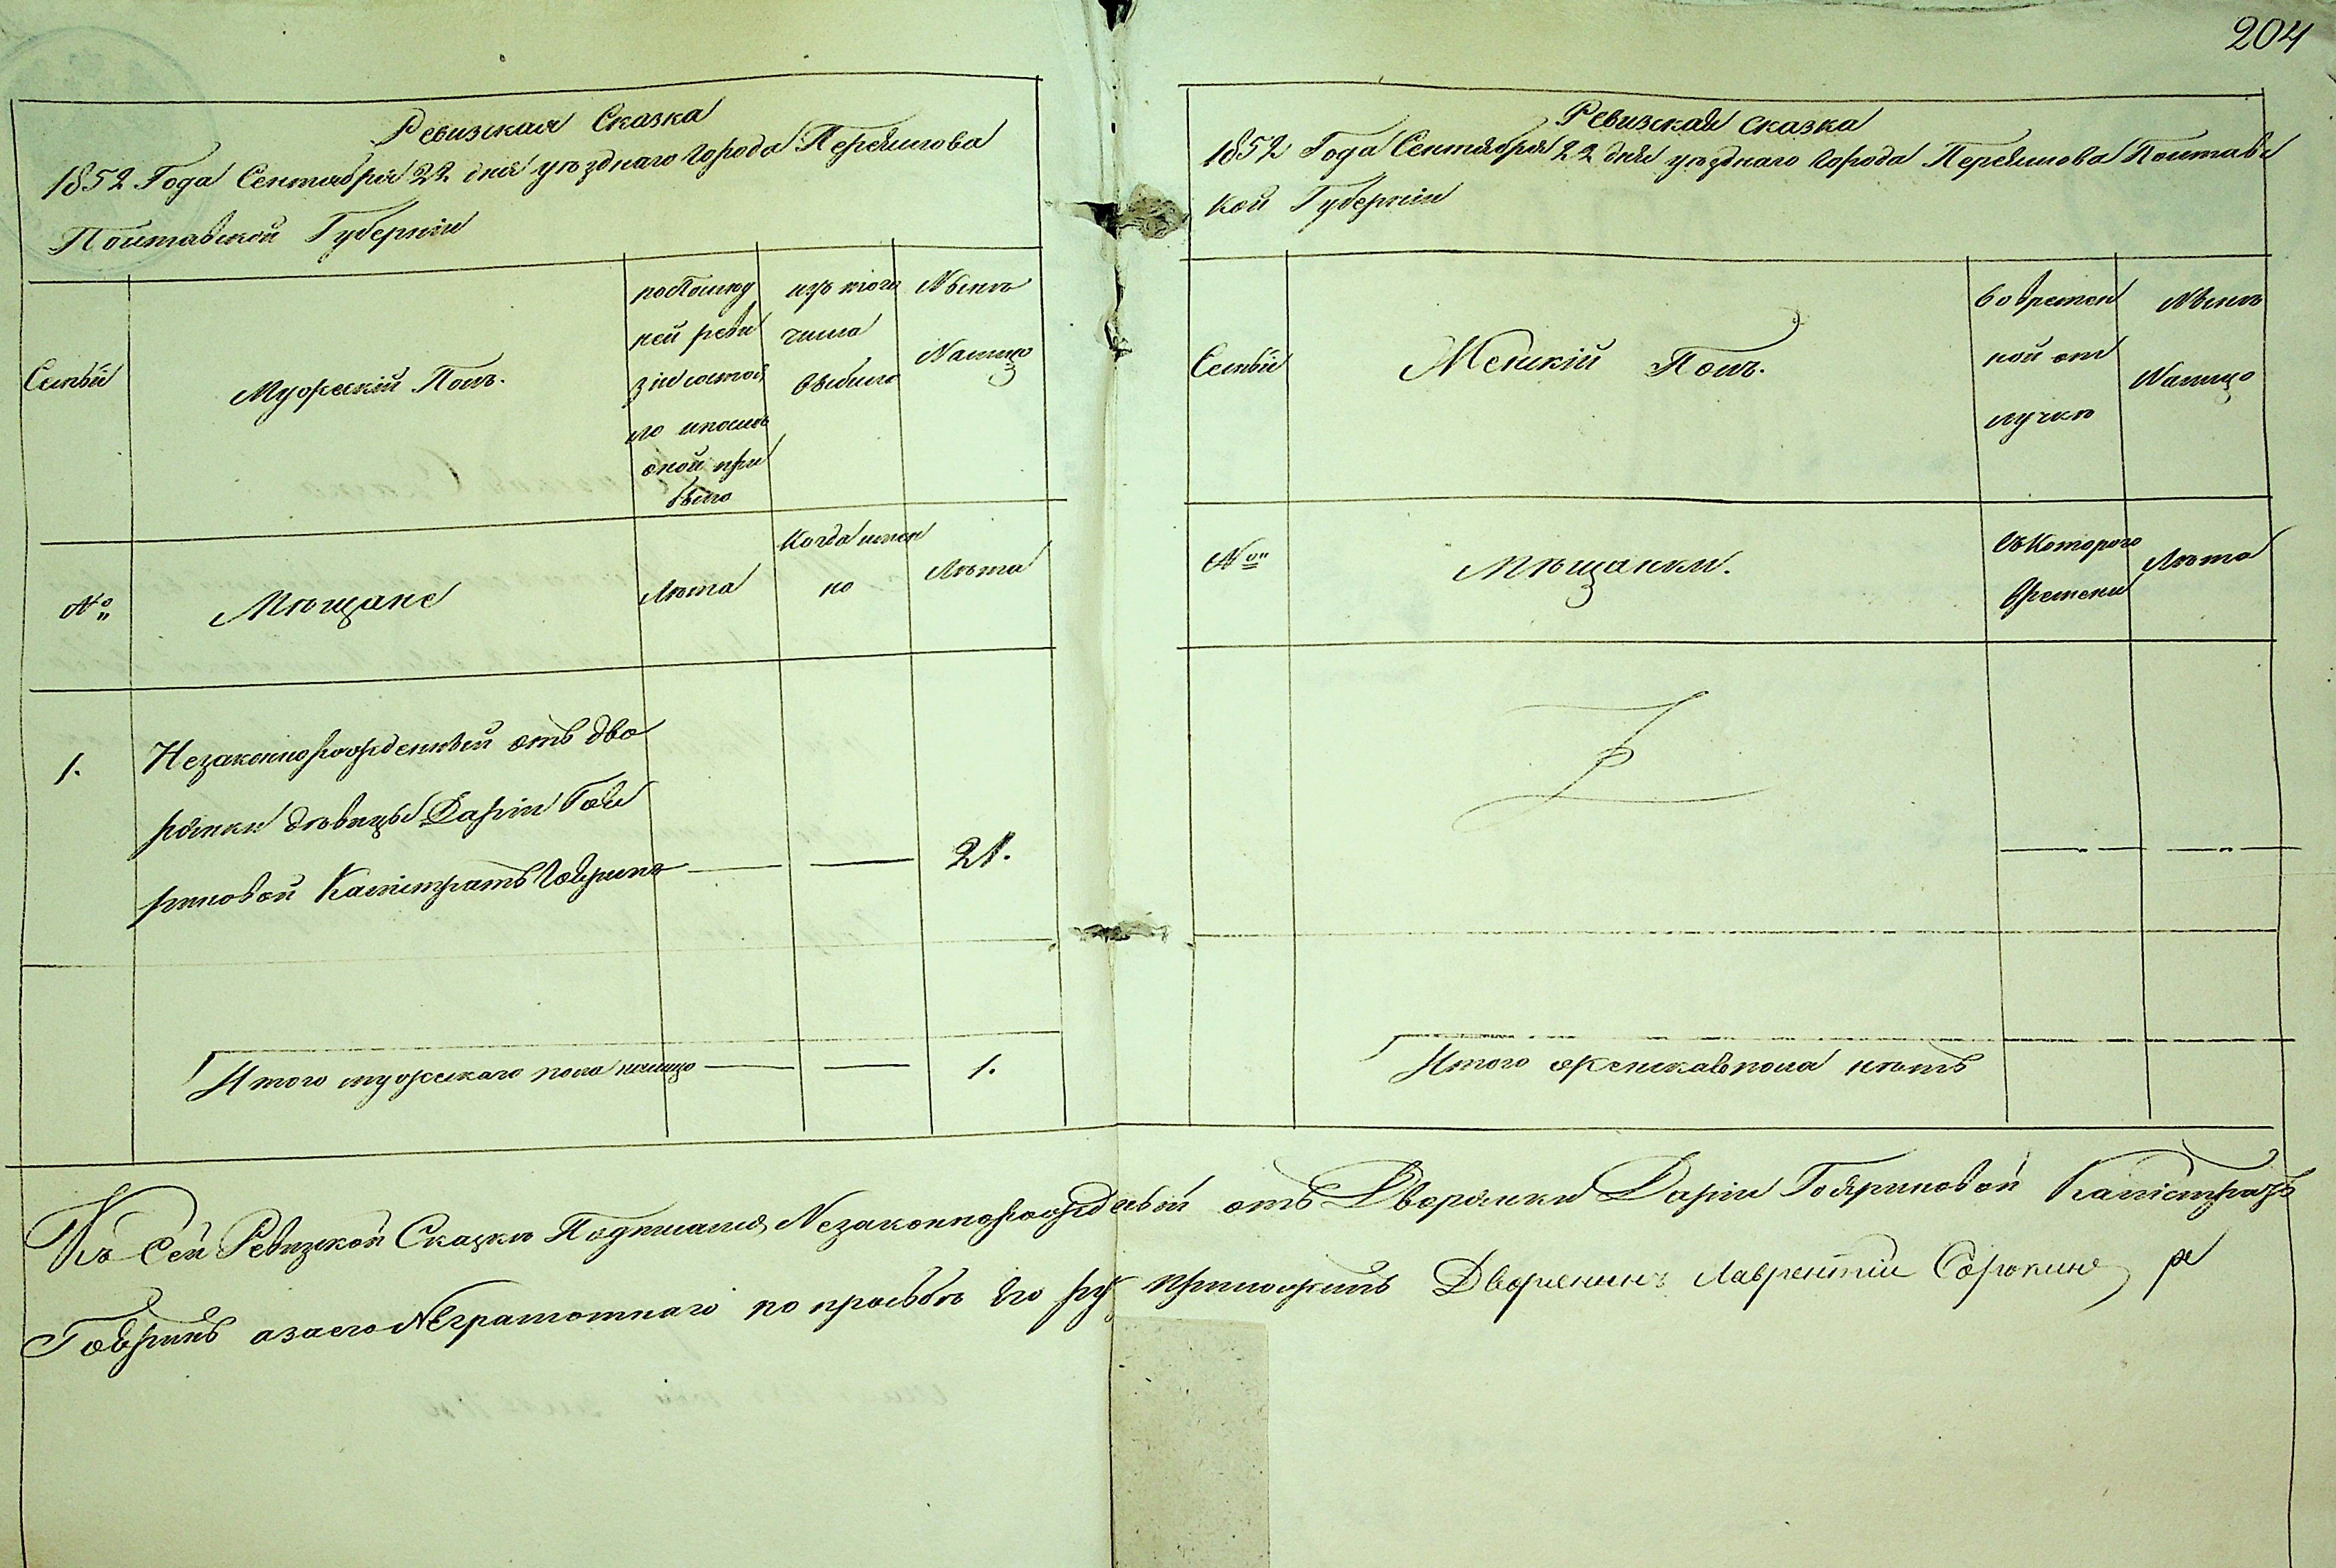 204
Ревизская Сказка
1852 Года Сентября 22 дня уѣзднаго Города Переяслова
Полтавской Губерніи
Семьи
Мужескій Полъ.
попослѣд
ней реви
зіи состоя
ло ипослѣ
оной при
было
изъ того
числа
выбыло
Нынѣ
Налицо
№
Мѣщане
Лѣта
Когда имен
но
Лѣта
1.
Незаконнорожденный отъ дво
рянки дѣвицы Даріи
риновой Калистратъ
21.
Итого мужескаго пола налицо
1.
Ревизская сказка
1852 Года Сентября 22 дня уѣзднаго Города Переяслова Полтавс
кой Губерніи
Семьи
Женскій Полъ.
Во времен
ной от
лучкѣ
Нынѣ
Налицо
№
Мѣщанки.
Съ Котораго
Времени
Лѣта
Итого женска пола нѣтъ
Къ Сей Ревизской Сказкѣ Подписался Незаконнорожденый отъ Дворянки Даріи Калистратъ
азаего Неграмотнаго по прозьбѣ его ру приложилъ Дворянинъ Лаврентій Сорокинъ